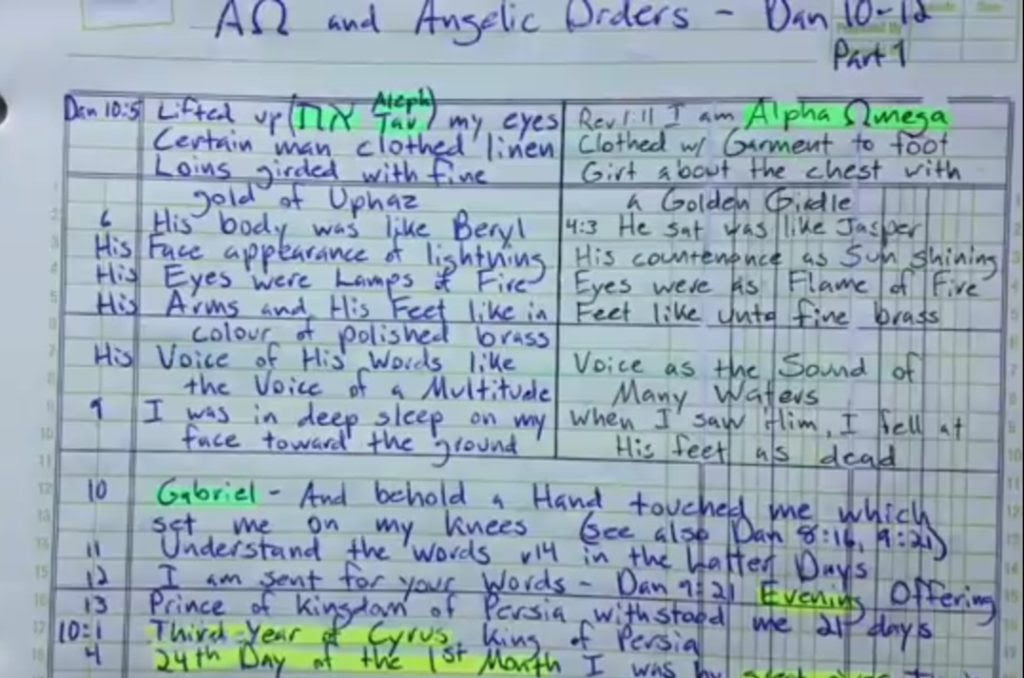 ΑΩ and Angelic Orders - Dan 10-12
Part 1
Dan 10:5 Lifted up (את Aleph Tav) my eyes
Certain man clothed linen
Loins girded with fine
gold of Uphaz
6 His body was like Beryl
His Face appearance of lightning
His Eyes were Lamps of Fire
His Arms and His Feet like in
colour of polished brass
His Voice of His Words like
the Voice of a Multitude
9 I was in deep sleep on my
face toward the ground
Rev 1:11 I am Alpha Ωmega
Clothed w/ Garment to foot
Girt about the chest with
a Golden Girdle
4:3 He sat was like Jasper
His countenance as Sun shining
Eyes were as Flame of Fire
Feet like unto fine brass
Voice as the Sound of
Many Waters
When I saw Him, I fell at
His feet as dead
10 Gabriel - And behold a Hand touched me which
set me on my knees (see also Dan 8:16, 9:21)
11 Understand the words v14 in the Latter Days
12 I am sent for your words - Dan 9:21 Evening Offering
13 Prince of kingdom of Persia withstood me 21 days
10:1 Third Year of Cyrus, king of Persia
4 24th Day of the 1st Month I was by